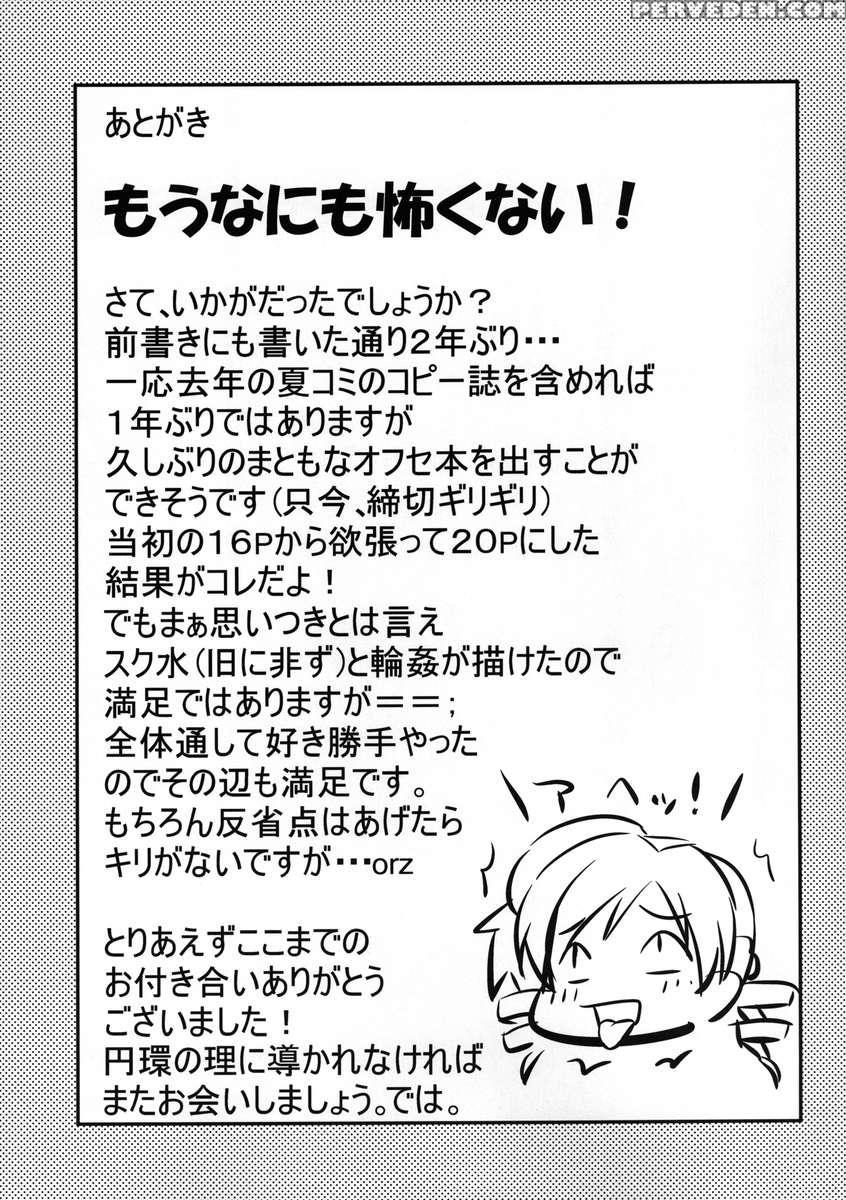 PERVEDEN.COM
あとがき
もうなにも怖くない！
さて、いかがだったでしょうか？
前書きにも書いた通り２年ぶり・・・
一応去年の夏コミのコピー誌を含めれば
１年ぶりではありますが
久しぶりのまともなオフセ本を出すことが
できそうです（只今、締切ギリギリ）
当初の１６Pから欲張って２０Pにした
結果がコレだよ！
でもまぁ思いつきとは言え
スク水（旧に非ず）と輪姦が描けたので
満足ではありますが＝＝；
全体通して好き勝手やった
のでその辺も満足です。
もちろん反省点はあげたら
キリがないですが・・・orz
\アヘッ！/
とりあえずここまでの
お付き合いありがとう
ございました！
円環の理に導かれなければ
またお会いしましょう。では。